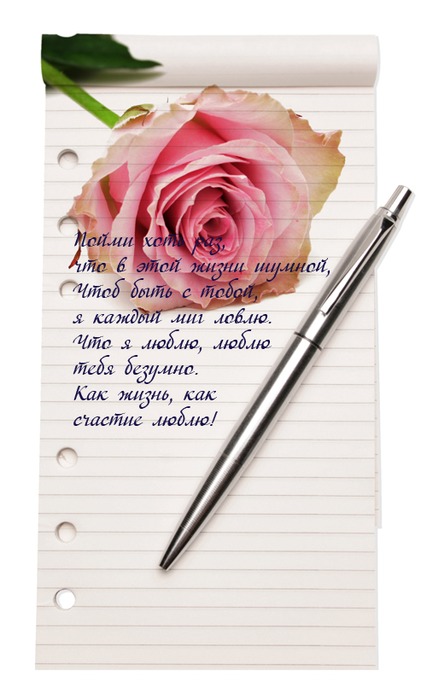 Пойми хоть раз,
что в этой жизни шумной,
Чтоб быть с тобой,
я каждый миг ловлю.
Что я люблю, люблю
тебя безумно.
Как жизнь, как
счастие люблю!